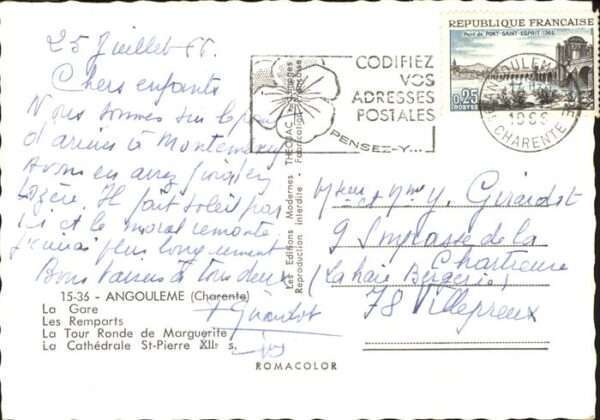 25 Juillet 66.
Chers enfants
Nous sommes sur le point
d'arriver à
Avons en
Il fait soleil pas
ici et le moral remonte
plus longuement
Bons baisers à tous deux
Girardot
15-36 - ANGOULEME (Charente)
La Gare
Les Remparts
La Tour Ronde de Marguerite
La Cathédrale St-Pierre XIIe s.
Les Editions Modernes THEOJAC
Reproduction interdite - Fabrication Française
ROMACOLOR
CODIFIEZ
VOS
ADRESSES
POSTALES
PENSEZ-Y...
REPUBLIQUE FRANCAISE
Pont de PONT-SAINT-ESPRIT 1265
0,25
POSTES
ANGOULEME
1966
CHARENTE
Y. Girardot
9 Impasse de la
Chartreuse
(La haie Bergerie)
78 Villepreux